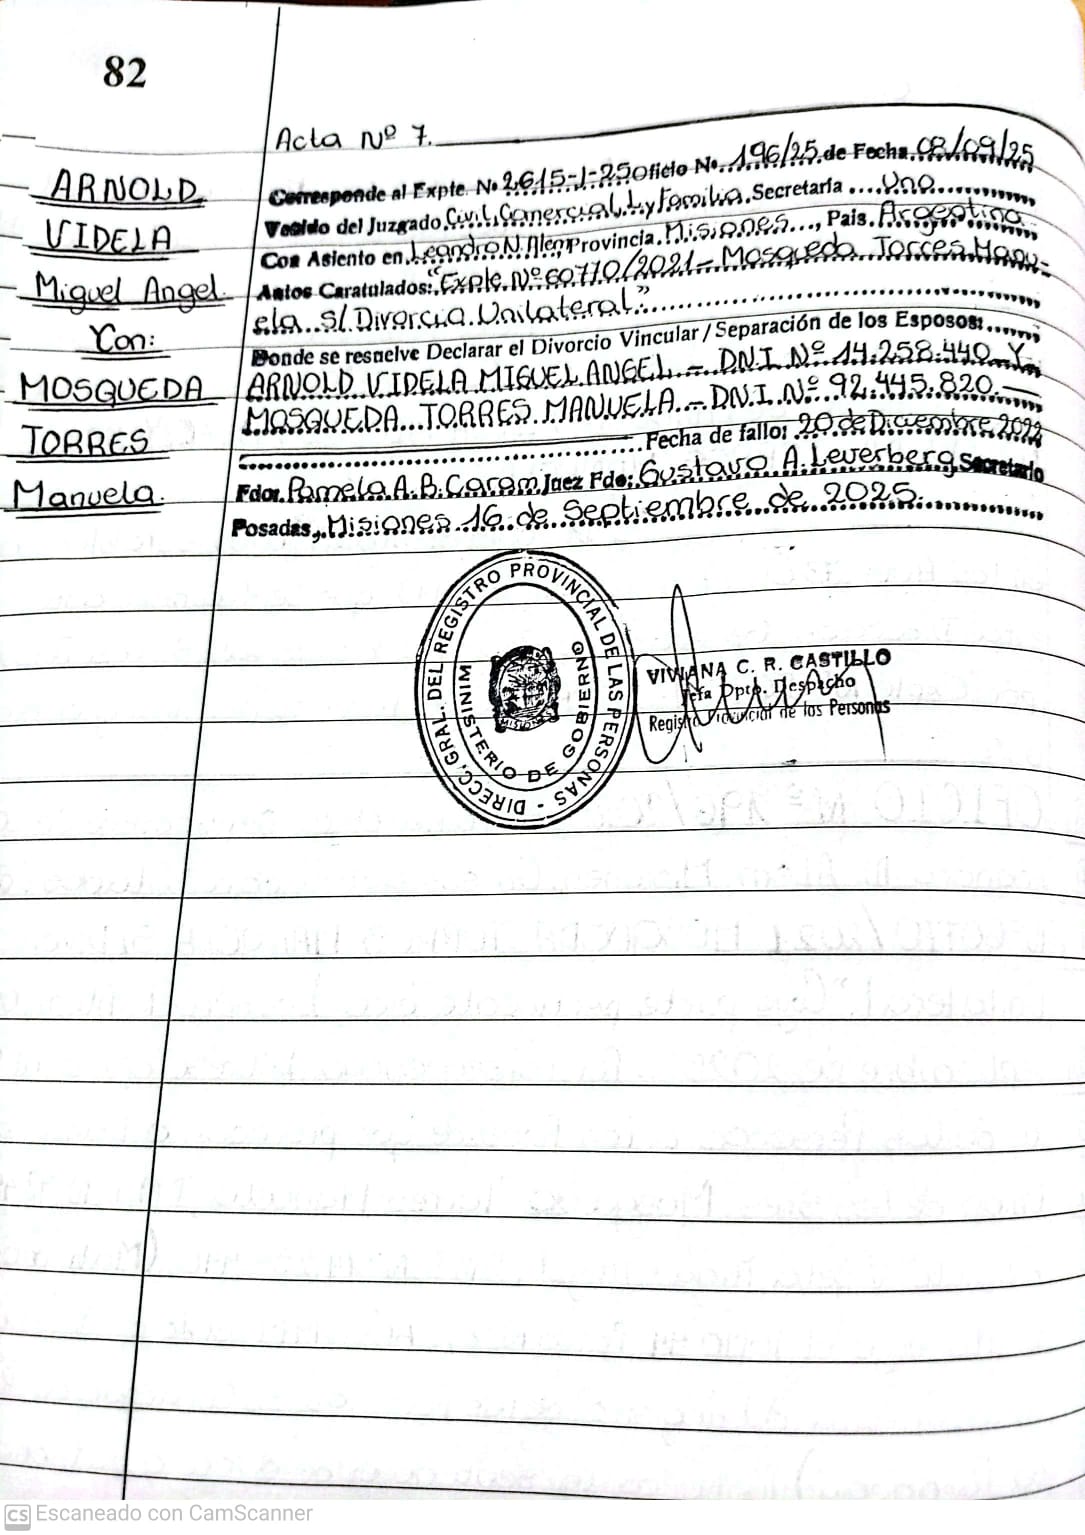 82
Acta Nº 7.
ARNOLD
VIDELA
Miguel Angel.
Con:
MOSQUEDA
TORRES
Manuela.
Corresponde al Expte. Nº 2615-J-25 Oficio Nº 196/25 de Fecha 08/09/25
Venido del Juzgado Civil, Comercial, L y Familia. Secretaría Uno
Con Asiento en Leandro N. Alem Provincia Misiones, Pais. Argentina
Autos Caratulados: "Expte. Nº 60770/2021 - Mosqueda Torres Manu-
ela s/ Divorcio Unilateral."
Donde se resuelve Declarar el Divorcio Vincular / Separación de los Esposos:
ARNOLD VIDELA MIGUEL ANGEL - DNI Nº 14.258.440 Y
MOSQUEDA TORRES MANUELA - DNI Nº 92.445.820.
Fecha de fallo: 20 de Diciembre 2022
Fdo: Pamela A. B. Caram Juez Fdo: Gustavo A. Leverberg Secretario
Posadas, Misiones 16 de Septiembre de 2025.
DIRECC. GRAL. DEL REGISTRO PROVINCIAL DE LAS PERSONAS -
MINISTERIO DE GOBIERNO
MISIONES
VIVIANA C. R. CASTILLO
Jefa Dpto. Despacho
Registro Provincial de las Personas
CS Escaneado con CamScanner